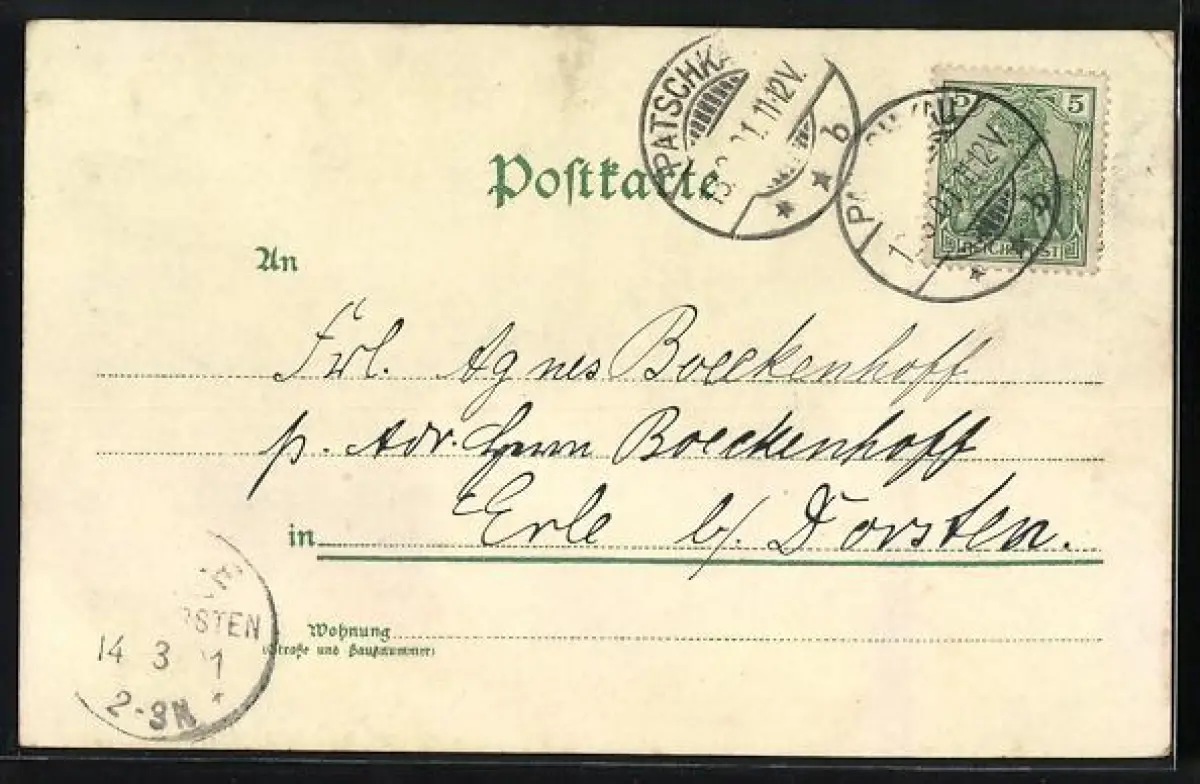 PATSCHK
13. 3. 01. 11-12V.
* * b
5 5
01. 11-12V.
* * b
REICHSPOST
Postkarte
An
Frl. Agnes Boeckenhoff
p. Adr. Herrn Boeckenhoff
in Erle b/. Dorsten.
RSTEN
14 3 1
2-3N *
Wohnung
(Straße und Hausnummer)